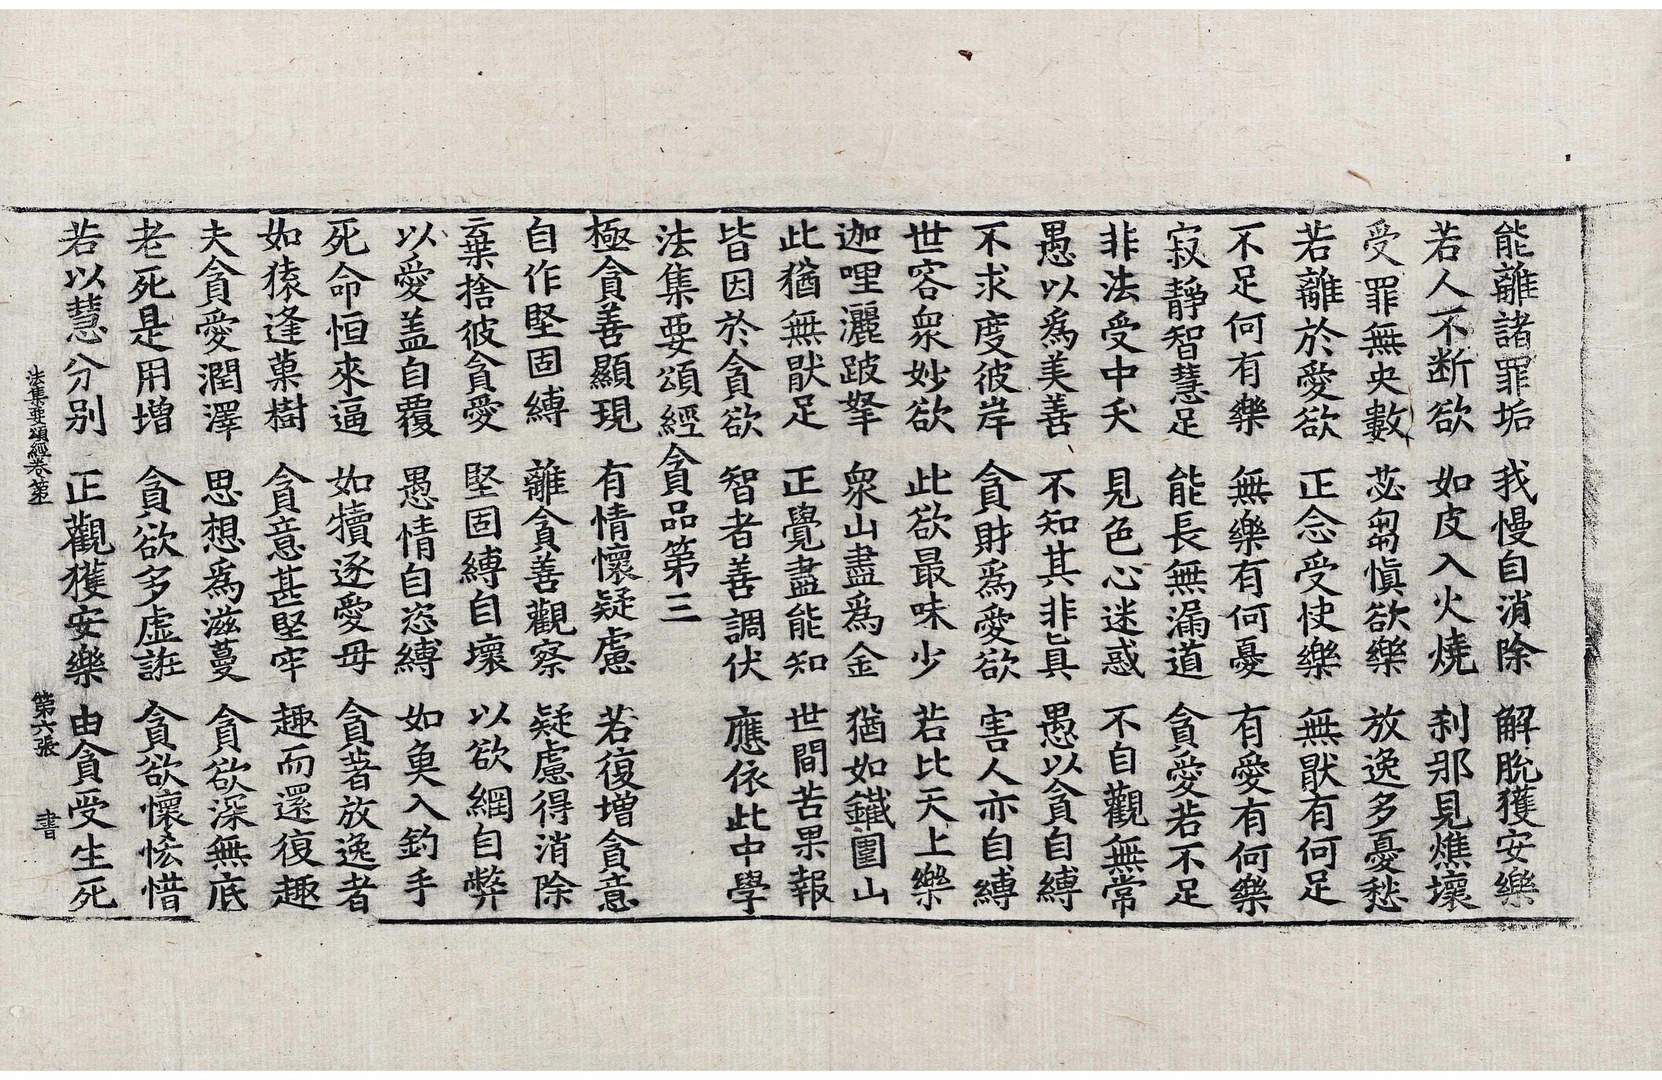 能離諸罪垢 我慢自消除 解脫獲安樂
若人不断欲 如皮入火燒 刹那見燋壞
受罪無央數 苾芻愼欲樂 放逸多憂愁
若離於愛欲 正念受快樂 無猒有何足
不足何有樂 無樂有何憂 有愛有何樂
寂靜智慧足 能長無漏道 貪愛若不足
非法受中夭 見色心迷惑 不自觀無常
愚以爲美善 不知其非眞 愚以貪自縛
不求度彼岸 貪財爲愛欲 害人亦自縛
世容衆妙欲 此欲最味少 若比天上樂
迦哩灑跛拏 衆山盡爲金 猶如鐵圍山
此猶無猒足 正覺盡能知 世間苦果報
皆因於貪欲 智者善調伏 應依此中學
法集要頌經貪品第三
極貪善顯現 有情懷疑慮 若復增貪意
自作堅固縛 離貪善觀察 疑慮得消除
棄捨彼貪愛 堅固縛自壞 以欲網自弊
以愛盖自覆 愚情自恣縛 如魚入釣手
死命恒來逼 如犢逐愛母 貪著放逸者
如猿逢菓樹 貪意甚堅牢 趣而還復趣
夫貪愛潤澤 思想爲滋蔓 貪欲深無底
老死是用增 貪欲多虛誑 貪欲懷悋惜
若以慧分别 正觀獲安樂 由貪受生死
法集要頌經卷第一 第六張 書